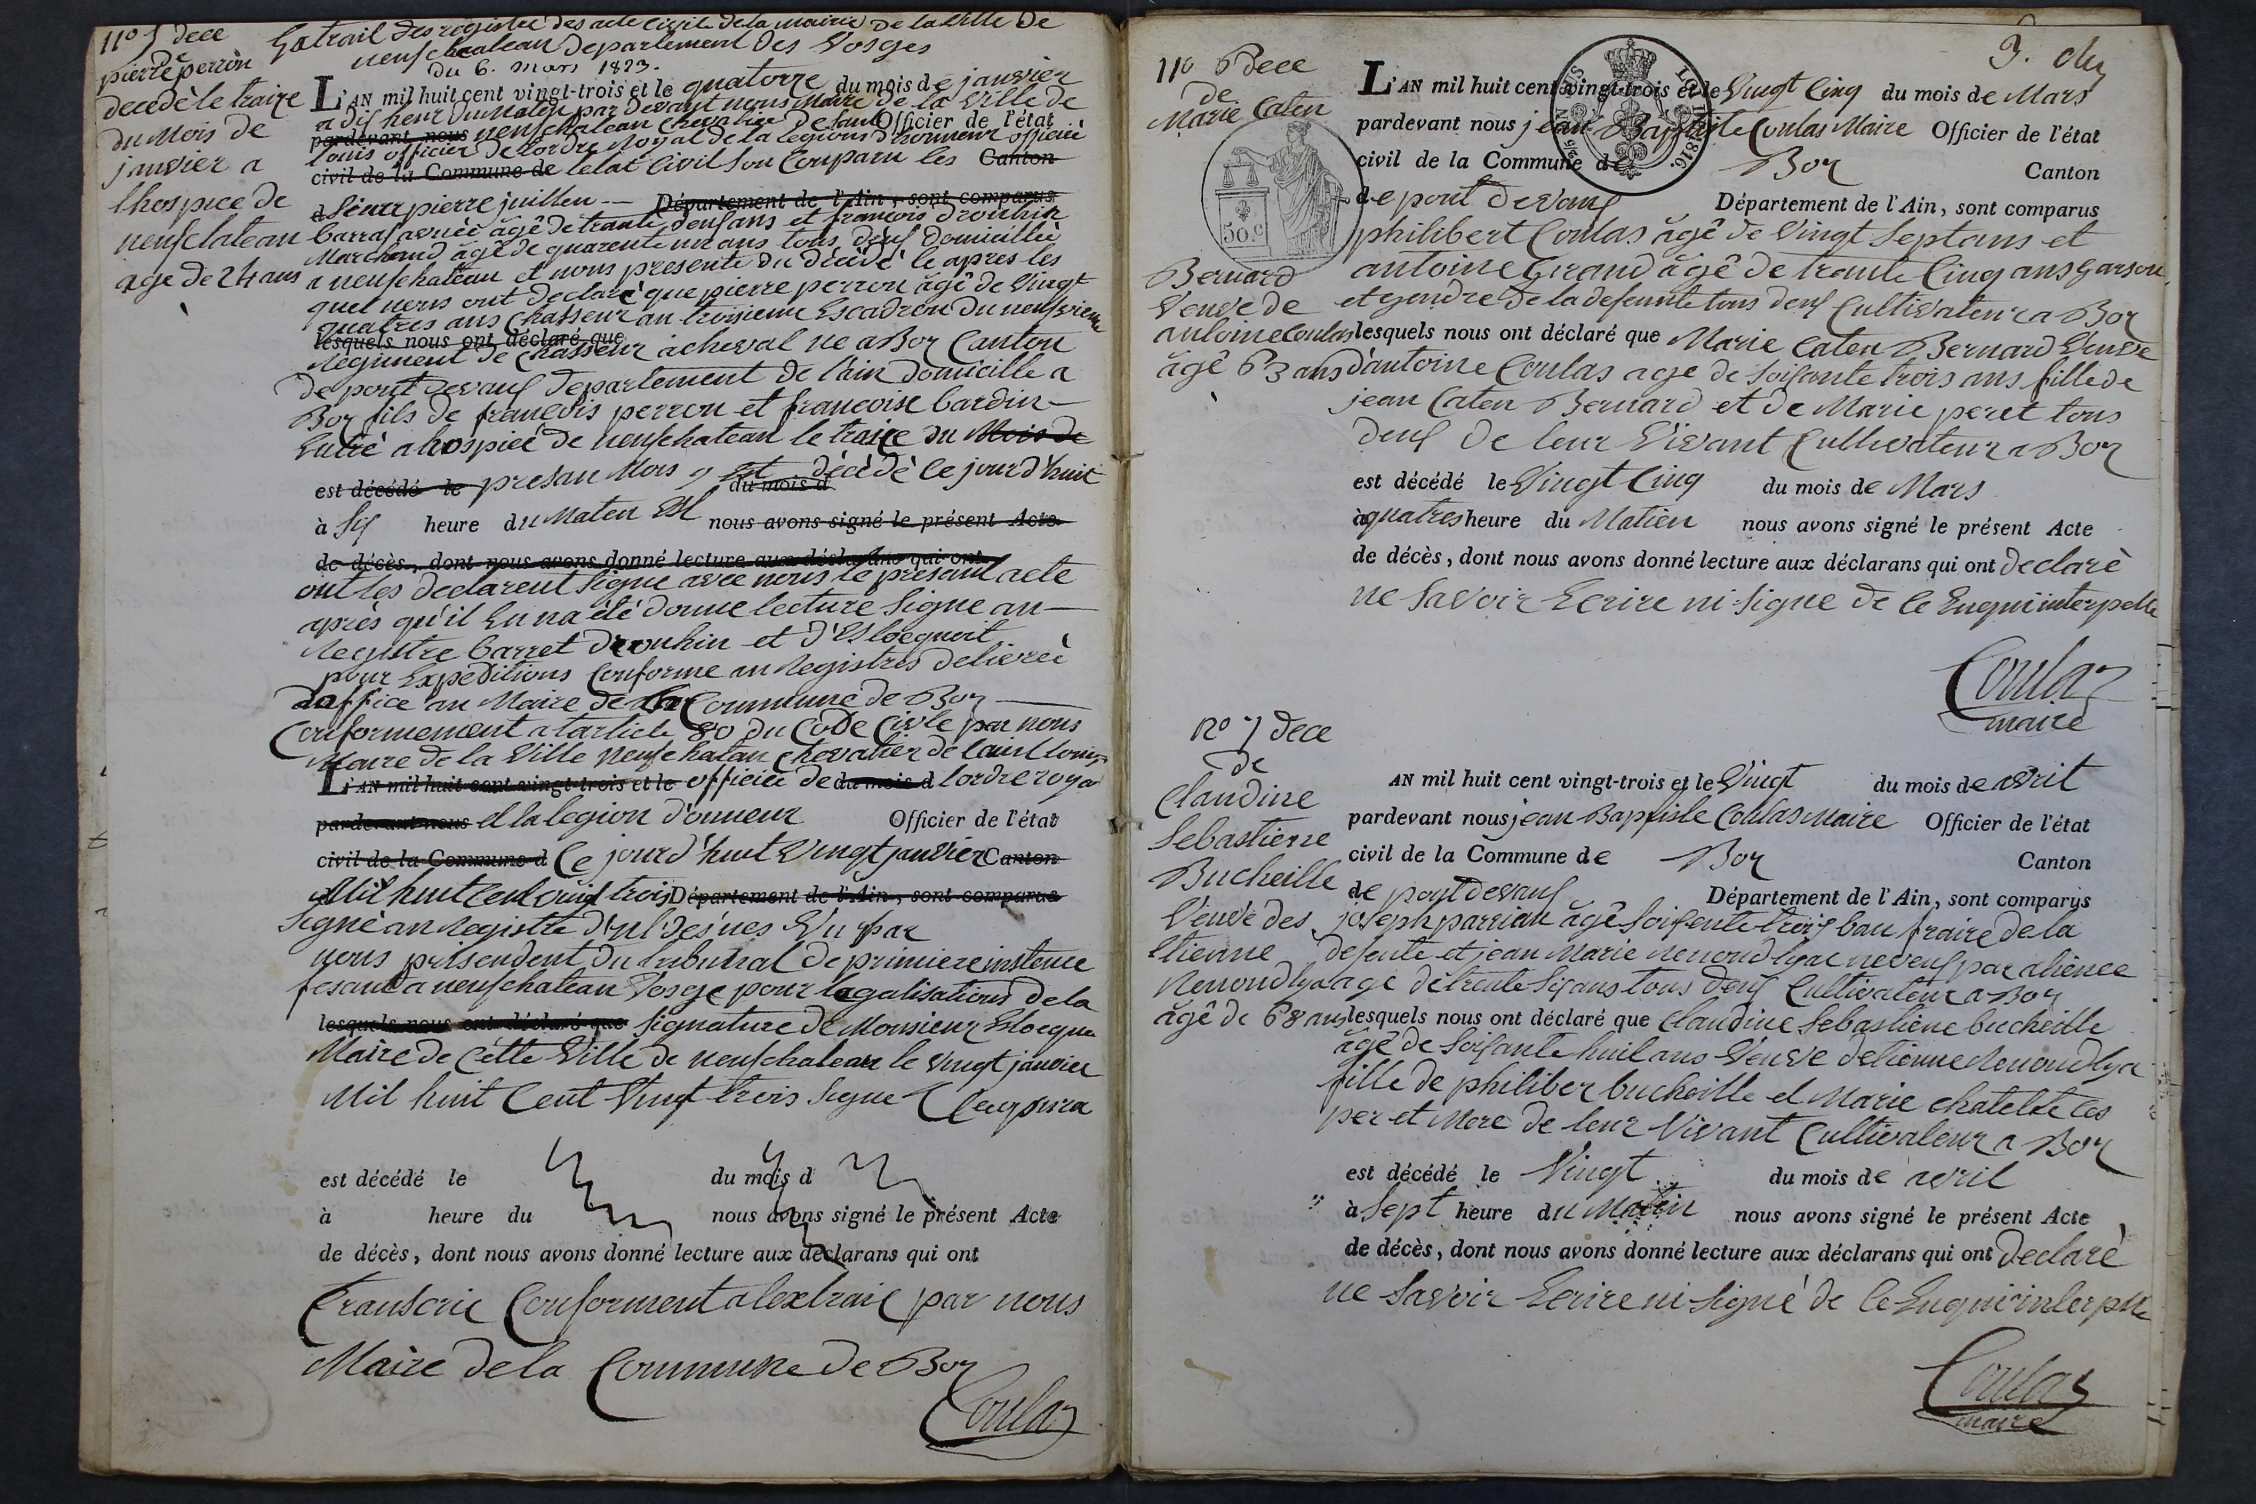 No 5 dece
pierre perron
decedè le traize
du Mois de
janvier a
lhospice de
neufchateau
age de 24 ans
Extrait des registre des acte civile de la mairie de la ville de
neufchateau departement des Vosges
du 6. mars 1823.
L'AN mil huit cent vingt-trois et le quatorze du mois de janvier
a dix heur du Matin par devant nous Maire de la Ville de
pardevant nous neufchateau chevalier de saint Officier de l'état
louis officier de lordre Royal de la legions d'honneur officiè
civil de la Commune de letat Civil son Comparu les Canton
d Sieur pierre juillen — Département de l'Ain, sont comparus
barras âgè de trante deux ans et françois Drouhin
Marchand âgè de quarente un ans tous deux domicilliè
a neufchateau et nous presente du décédé le apres les
quel nous ont declarè que pierre perron âgè de Vingt
quatres ans Chasseur au troisieme Escadron du neufvieme
lesquels nous ont déclaré que
Regiment de Chasseur à cheval ne a Boz Canton
de pont devaux departement de l'ain domicille a
Boz fils de francois perron et francoise bardin
Entrè a hospice de neufchateau le traize du Mois de
est décédé le presan Mois y Est décèdè ce jourd'huit
du mois d
à Six heure du Maten Et nous avons signé le présent Acte
de décès, dont nous avons donné lecture aux déclarans qui ont
ont les declarent signe avec nous le présant acte
après qu'il En na été donne lecture Signe au
Registre barret Drouhin et d'Eslocquoit
pour Expeditions Conforme au Registres delivreè
doffice au Maire de la Commune de Boz
Conformement a larticle 80 du Code Civile par nous
Maire de la Ville Neufchatau chevalier de Saint louis
L'AN mil huit cent vingt-trois et le officiée de du mois d lordre royal
pardevant nous et la legion d'onneur Officier de l'état
civil de la Commune d Ce jourd'huit Vingt janvier Canton
Mil huit Cent vingt trois Département de l'Ain, sont comparus
Signè au Registre Vu par
nous présendent du tribunal de primiere instence
sesant a neufchateau Vosge pour legalisations de la
lesquels nous ont déclaré que signature de Monsieur Eslocque
Maire de Cètte Ville de neufchateau le Vingt janvier
Mil huit Cent Vingt trois Signe
est décédé le du mois d
à heure du nous avons signé le présent Acte
de décès, dont nous avons donné lecture aux déclarans qui ont
transcrie Conforment a lextrait par nous
Maire de la Commune de Boz
Coulas
No 6 Dece
de
Marie Caten
Bernard
Veuve de
antoine Coulas
âgè 63 ans
50.c
LOI DE 1816.
L'AN mil huit cent vingt-trois et le Vingt Cinq du mois de Mars
pardevant nous jean Baptiste Coulas Maire Officier de l'état
civil de la Commune de Boz Canton
de pont devaux Département de l'Ain, sont comparus
philibert Coulas âgè de Vingt Sept ans et
antoine Girand âgè de trante Cinq ans garson
et gendre de la defeunte tous deux Cultivateur a Boz
lesquels nous ont déclaré que Marie Caten Bernard Veuve
d'antoine Coulas age de soixante trois ans fille de
jean Caten Bernard et de Marie peret tous
deux de leur Vivant Cultivateur a Boz
est décédé le Vingt Cinq du mois de Mars
à quatres heure du Matien nous avons signé le présent Acte
de décès, dont nous avons donné lecture aux déclarans qui ont Declarè
ne Savoir Ecrire ni signe de ce Enqui interpelle
Coulas
maire
No 7 dece
de
Claudine
Sebastienne
Bucheille
Veuve des
Etienne
Renoud lya
âgè de 68 ans
AN mil huit cent vingt-trois et le Vingt du mois de avrit
pardevant nous jean Baptiste Coulas Maire Officier de l'état
civil de la Commune de Boz Canton
de pont devaux Département de l'Ain, sont comparus
joseph parriau âgè soixente trois bau fraire de la
defunte et jean Marie Renoud lyac neveux par alience
age dètrente Six ans tous deux Cultivateur a Boz
lesquels nous ont déclaré que Claudine Sebastiene bucheille
âgè de soixante huit ans Veuve detienne Renoud lya
fille de philiber bucheille et Marie chatelte Ces
per et Mere de leur Vivant Cultivateur a Boz
est décédé le Vingt du mois de avril
à Sept heure du Matin nous avons signé le présent Acte
de décès, dont nous avons donné lecture aux déclarans qui ont Declarè
ne Savoir Ecrire ni Signé de Ce Enqui interpelle
Coulas
maire